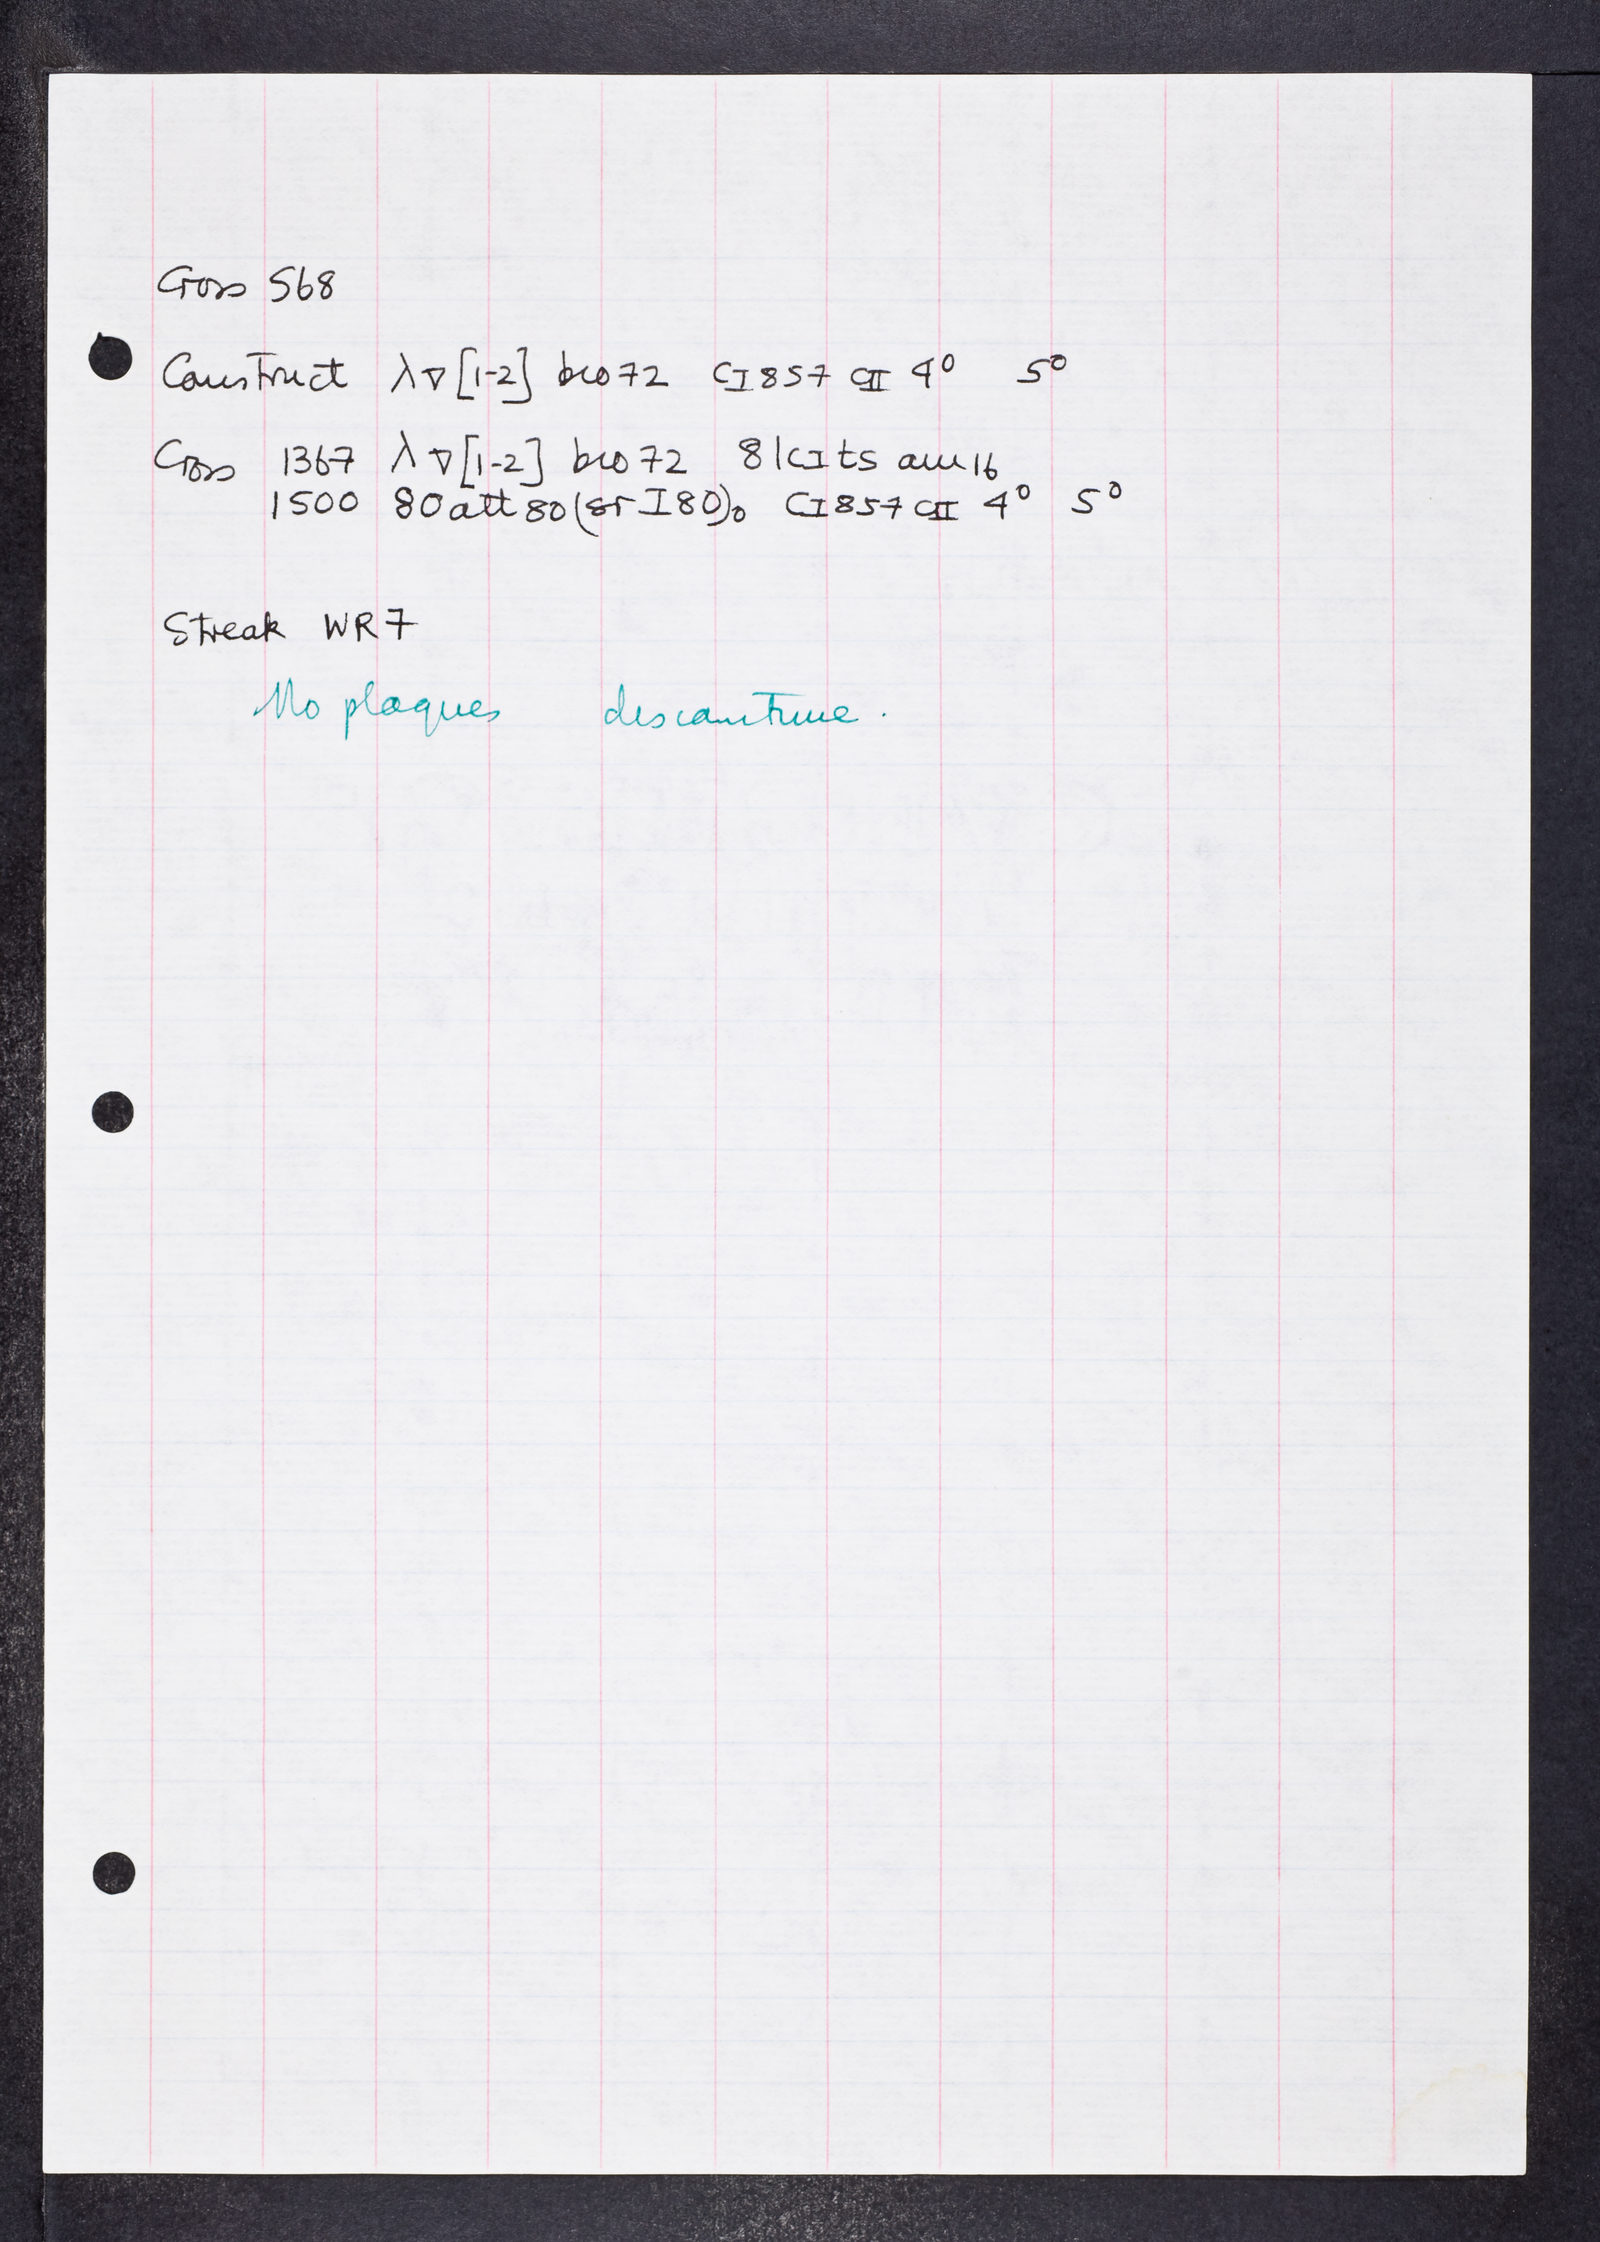 Cross 568
Construct λ∇[1-2] bio72 CI857 CII 4⁰ 5⁰
Cross 1367 λ∇[1-2] bio72 81CIts am16
1500 80att80(srI80)₀ CI857 CII 4⁰ 5⁰
Streak WR7
No plaques discontinue.